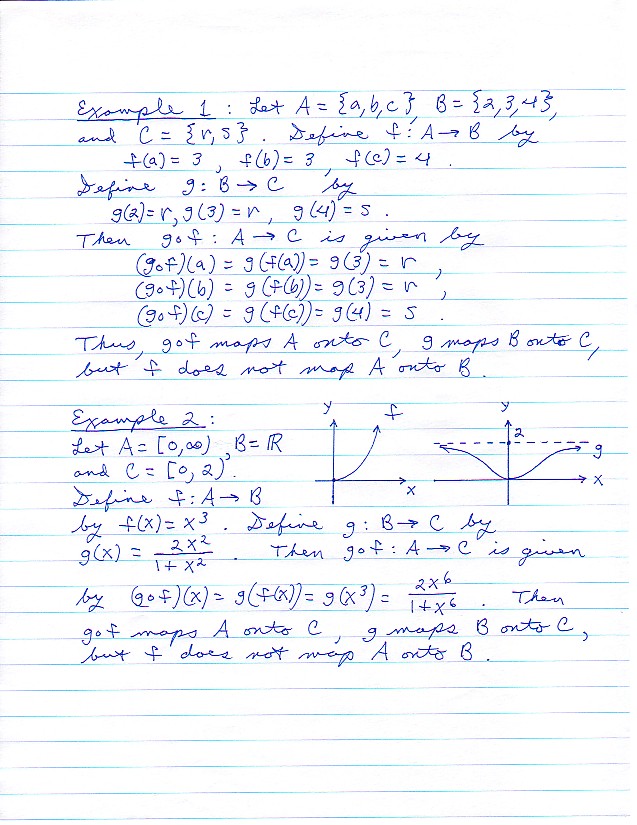 Example 1 : Let A = {a,b,c}, B = {2,3,4},
and C = {r,s}. Define f : A → B by
f(a) = 3 , f(b) = 3 , f(c) = 4 .
Define g : B → C by
g(2) = r, g(3) = r, g(4) = s .
Then g∘f : A → C is given by
(g∘f)(a) = g(f(a)) = g(3) = r ,
(g∘f)(b) = g(f(b)) = g(3) = r ,
(g∘f)(c) = g(f(c)) = g(4) = s .
Thus, g∘f maps A onto C, g maps B onto C,
but f does not map A onto B .
Example 2 :
Let A = [0,∞), B = ℝ
and C = [0, 2).
Define f : A → B
y f x
y 2 g x
by f(x) = x³ . Define g : B → C by
g(x) = 2x² / 1 + x² . Then g∘f : A → C is given
by (g∘f)(x) = g(f(x)) = g(x³) = 2x⁶ / 1+x⁶ . Then
g∘f maps A onto C, g maps B onto C,
but f does not map A onto B .